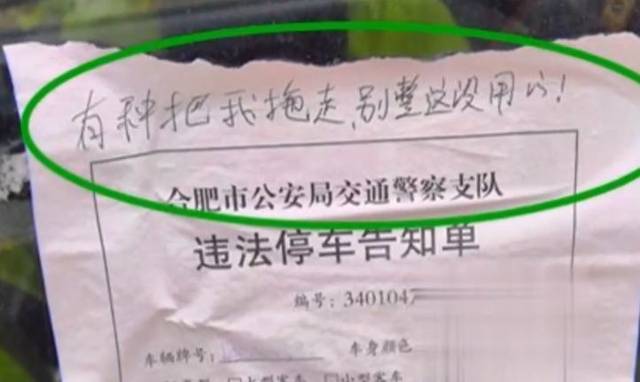 有种把我拖走,别整这没用的!
合肥市公安局交通警察支队
违法停车告知单
编号:3401047
车辆牌号:
车身颜色